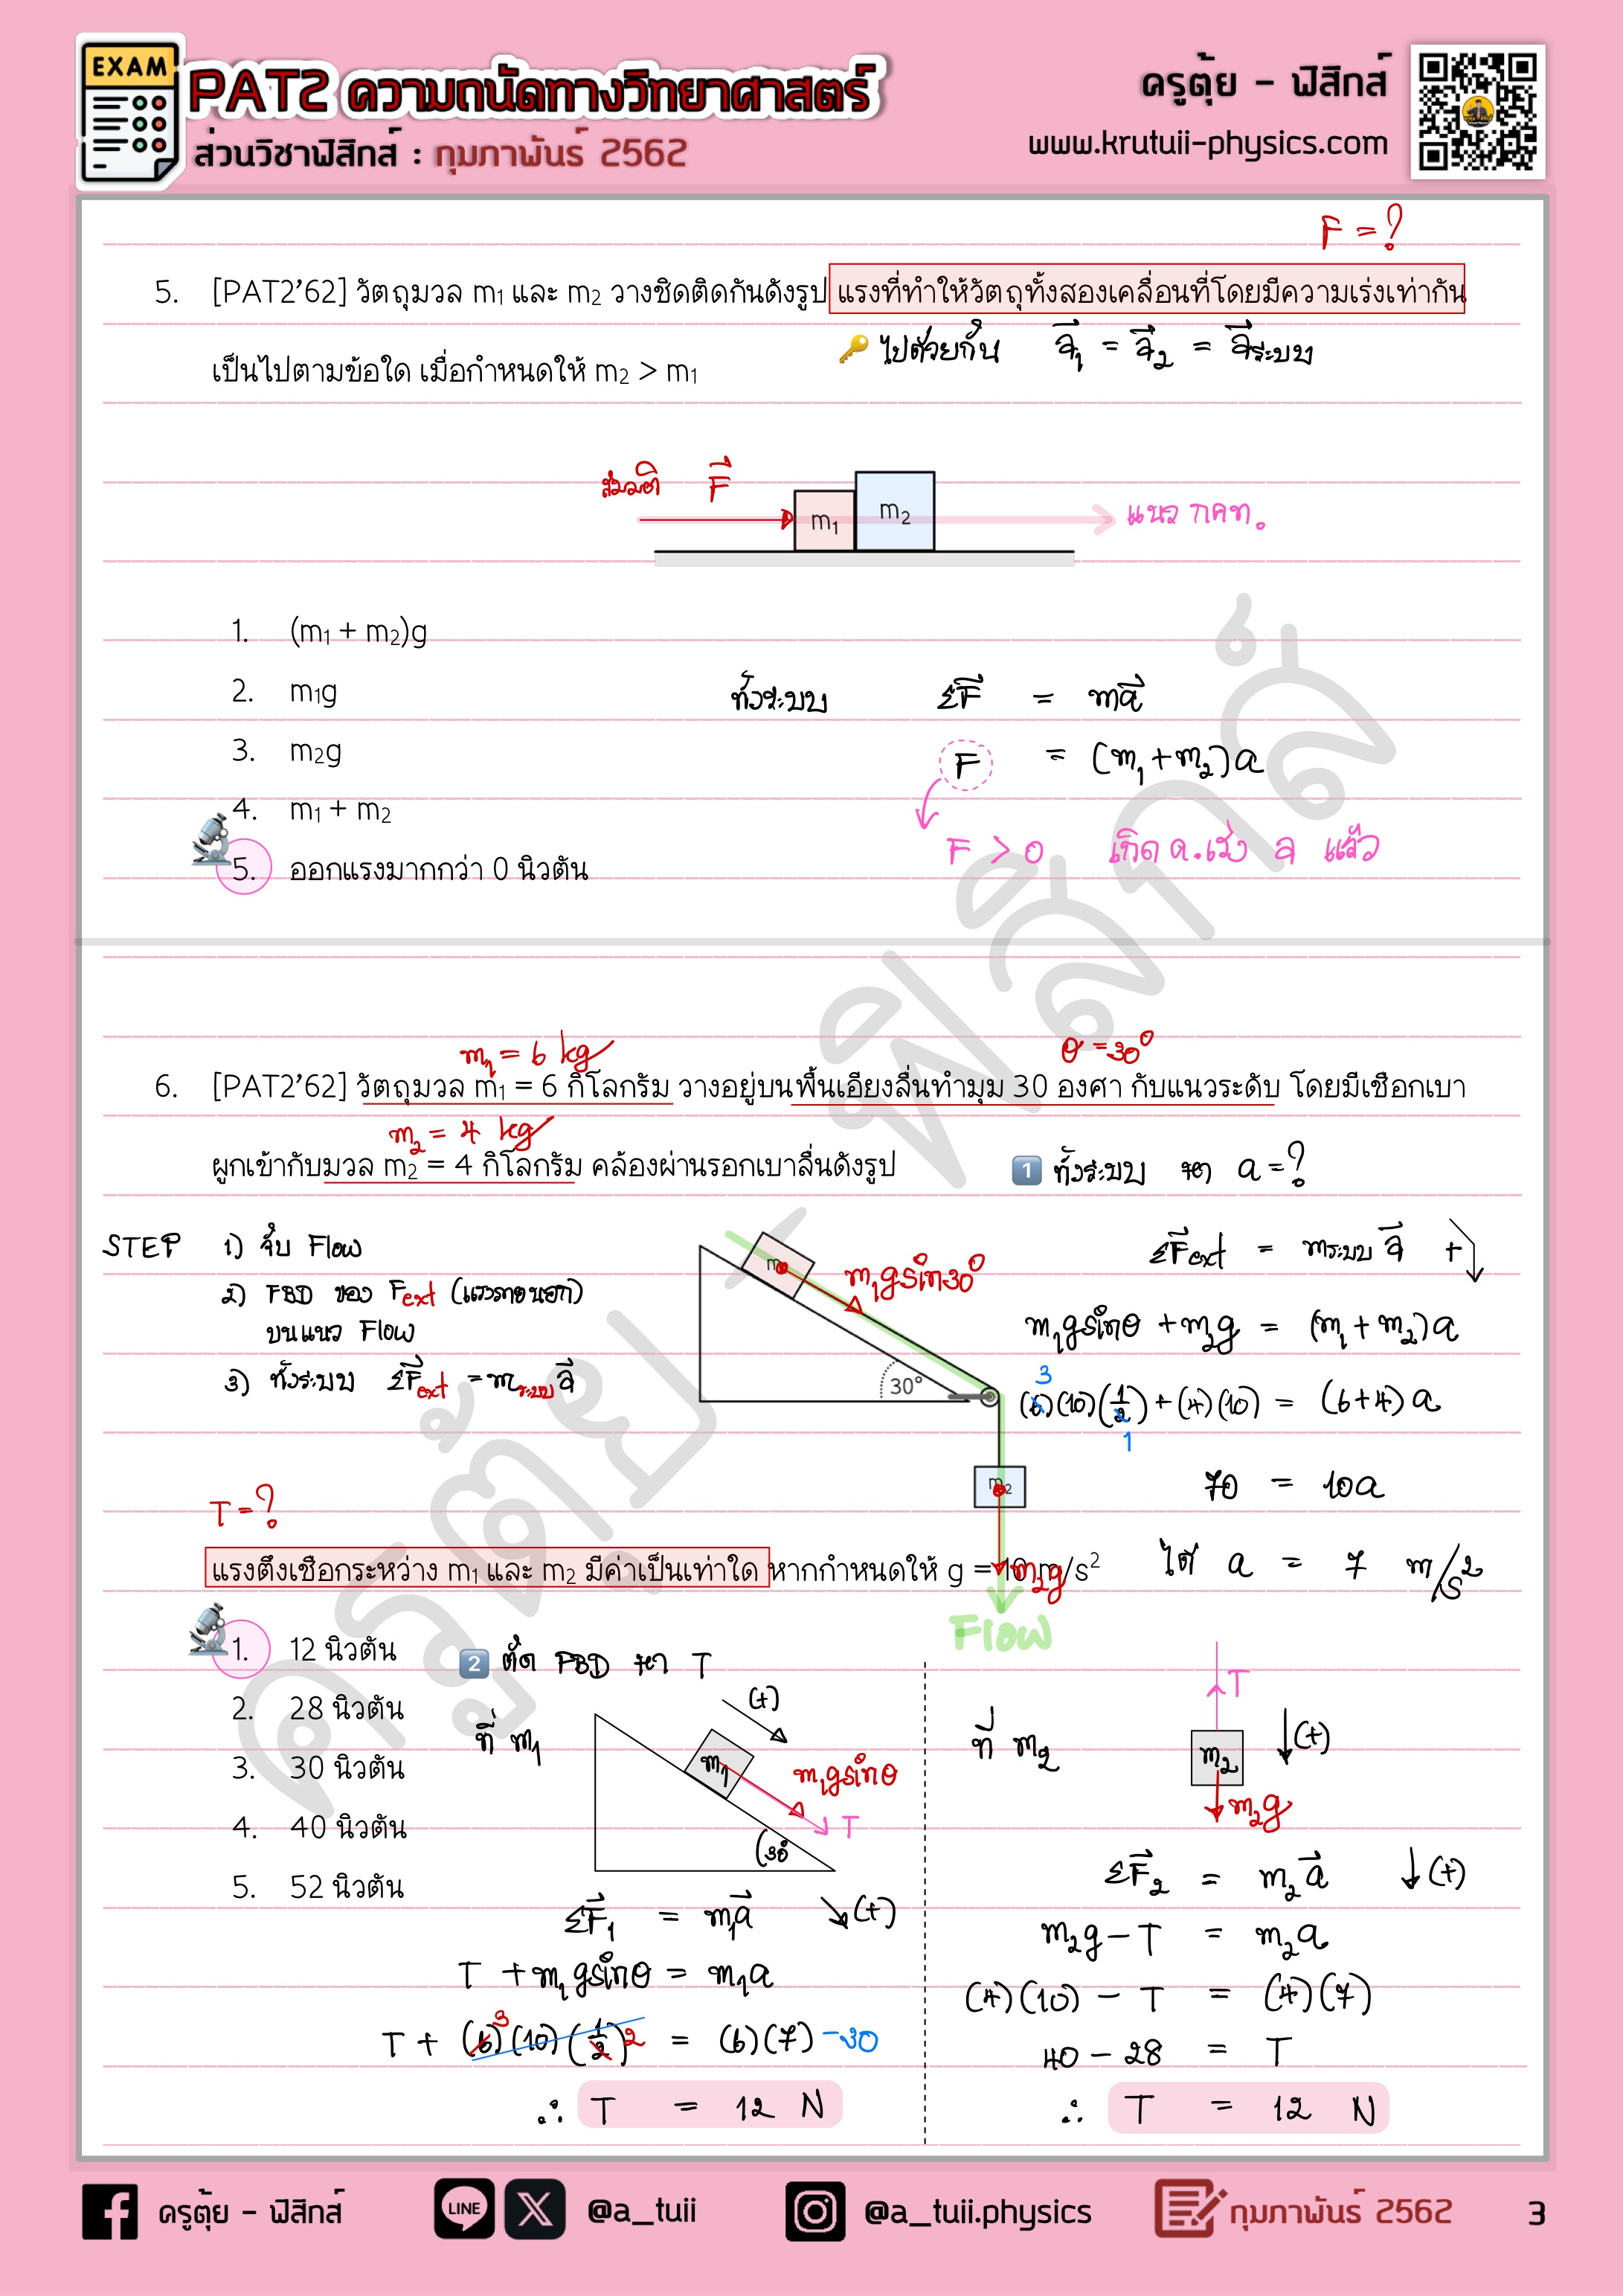 EXAM
PAT2 ความถนัดทางวิทยาศาสตร์
ส่วนวิชาฟิสิกส์ : กุมภาพันธ์ 2562
ครูตุ้ย - ฟิสิกส์
www.krutuii-physics.com
F = ?
5. [PAT2'62] วัตถุมวล m₁ และ m₂ วางชิดติดกันดังรูป แรงที่ทำให้วัตถุทั้งสองเคลื่อนที่โดยมีความเร่งเท่ากัน
ไปด้วยกัน a⃗₁ = a⃗₂ = a⃗ระบบ
เป็นไปตามข้อใด เมื่อกำหนดให้ m₂ > m₁
สมมติ F⃗
m₁ m₂
แนว กคท.
1. (m₁ + m₂)g
2. m₁g
ทั้งระบบ ΣF⃗ = ma⃗
3. m₂g
F = (m₁+m₂)a
4. m₁ + m₂
F > 0 เกิด ค.เร่ง a แล้ว
5. ออกแรงมากกว่า 0 นิวตัน
m₁ = 6 kg
θ = 30°
6. [PAT2'62] วัตถุมวล m₁ = 6 กิโลกรัม วางอยู่บนพื้นเอียงลื่นทำมุม 30 องศา กับแนวระดับ โดยมีเชือกเบา
m₂ = 4 kg
ผูกเข้ากับมวล m₂ = 4 กิโลกรัม คล้องผ่านรอกเบาลื่นดังรูป
1 ทั้งระบบ หา a = ?
STEP 1) จับ Flow
2) FBD ของ Fext (แรงภายนอก)
บนแนว Flow
3) ทั้งระบบ ΣF⃗ext = mระบบ a⃗
m₁gsin30°
30°
m₂
m₂g
Flow
ΣF⃗ext = mระบบ a⃗ +
m₁gsinθ + m₂g = (m₁+m₂)a
3
(6)(10)(1/2) + (4)(10) = (6+4)a
1
70 = 10a
ได้ a = 7 m/s²
T = ?
แรงตึงเชือกระหว่าง m₁ และ m₂ มีค่าเป็นเท่าใด หากกำหนดให้ g = 10 m/s²
1. 12 นิวตัน
2. 28 นิวตัน
3. 30 นิวตัน
4. 40 นิวตัน
5. 52 นิวตัน
2 ตัด FBD หา T
ที่ m₁
(+)
m₁
m₁gsinθ
T
30°
ΣF⃗₁ = m₁a⃗ (+)
T + m₁gsinθ = m₁a
T + (6)3(10)(1/2)2 = (6)(7) -30
∴ T = 12 N
ที่ m₂
T
m₂
(+)
m₂g
ΣF⃗₂ = m₂a⃗ (+)
m₂g - T = m₂a
(4)(10) - T = (4)(7)
40 - 28 = T
∴ T = 12 N
ครูตุ้ย - ฟิสิกส์
ครูตุ้ย - ฟิสิกส์
LINE
X
@a_tuii
@a_tuii.physics
กุมภาพันธ์ 2562
3